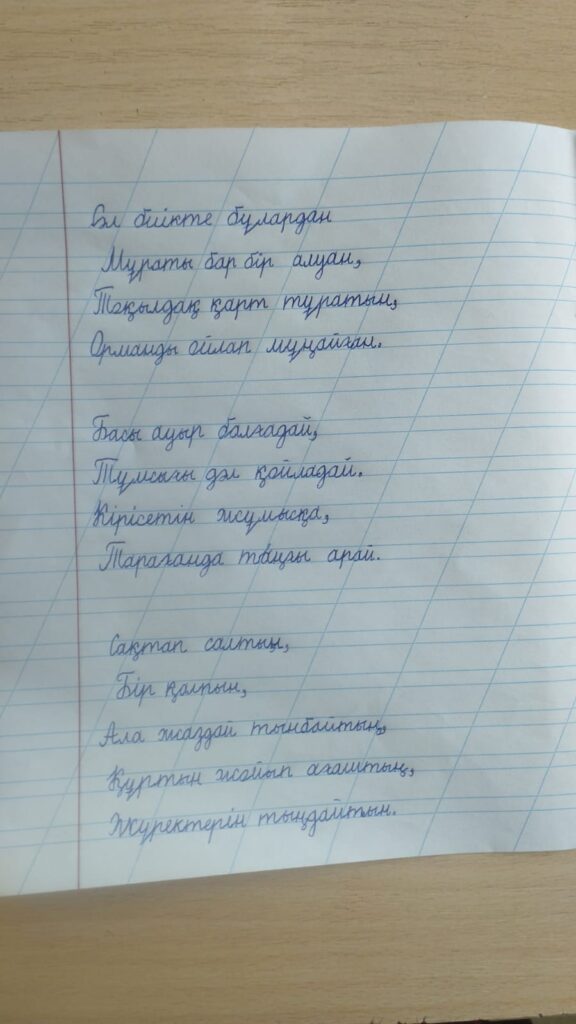 Сәл биікте бұлардан
Мұраты бар бір алуан,
Тоқылдақ қарт тұратын,
Орманды ойлап мұңайған.
Басы ауыр балғадай,
Тұмсығы дәл қойладай.
Кірісетін жұмысқа,
Тарағанда таңғы арай.
Сақтап салтын,
Бір қалпын,
Ала жаздай тынбайтын,
Құртын жойып ағаштың,
Жүректерін тыңдайтын.